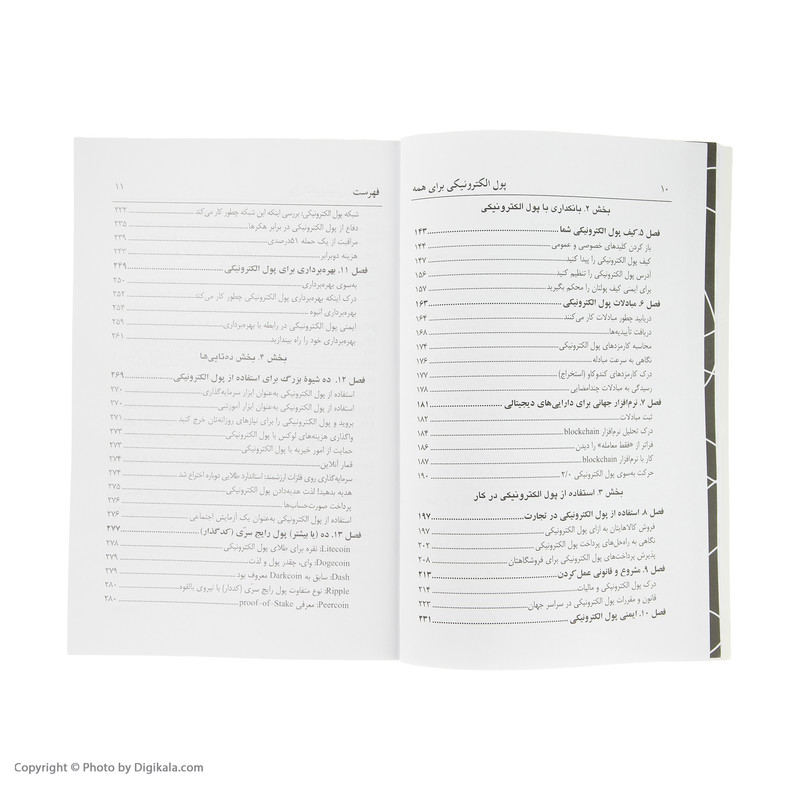 ۱۰ پول الکترونیکی برای همه
بخش ۲. بانکداری با پول الکترونیکی
فصل ۵. کیف پول الکترونیکی شما ۱۴۳
باز کردن کلیدهای خصوصی و عمومی ۱۴۴
کیف پول الکترونیکی را پیدا کنید ۱۴۷
آدرس پول الکترونیکی را تنظیم کنید ۱۵۶
برای ایمنی کیف پولتان را محکم بگیرید ۱۵۷
فصل ۶. مبادلات پول الکترونیکی ۱۶۳
دریابید چطور مبادلات کار می‌کنند ۱۶۴
دریافت تأییدیه‌ها ۱۶۸
محاسبه کارمزدهای پول الکترونیکی ۱۷۴
نگاهی به سرعت مبادله ۱۷۶
درک کارمزدهای کندوکاو (استخراج) ۱۷۷
رسیدگی به مبادلات چندامضایی ۱۷۸
فصل ۷. نرم‌افزار جهانی برای دارایی‌های دیجیتالی ۱۸۱
ثبت مبادلات ۱۸۲
درک تحلیل نرم‌افزار blockchain ۱۸۴
فراتر از «فقط معامله» را دیدن ۱۸۶
کار با نرم‌افزار blockchain ۱۸۷
حرکت به‌سوی پول الکترونیکی ۲/۰ ۱۹۰
بخش ۳. استفاده از پول الکترونیکی در کار
فصل ۸. استفاده از پول الکترونیکی در تجارت ۱۹۷
فروش کالاهایتان به ازای پول الکترونیکی ۱۹۷
نگاهی به راه‌حل‌های پرداخت پول الکترونیکی ۲۰۲
پذیرش پرداخت‌های پول الکترونیکی برای فروشگاهتان ۲۰۸
فصل ۹. مشروع و قانونی عمل کردن ۲۱۳
درک پول الکترونیکی و مالیات ۲۱۴
قانون و مقررات پول الکترونیکی در سراسر جهان ۲۲۳
فصل ۱۰. ایمنی پول الکترونیکی ۲۳۱
فهرست ۱۱
شبکه پول الکترونیکی: بررسی اینکه این شبکه چطور کار می‌کند ۲۳۲
دفاع از پول الکترونیکی در برابر هکرها ۲۳۵
مراقبت از یک حمله ۵۱درصدی ۲۳۹
هزینه دوبرابر ۲۴۳
فصل ۱۱. بهره‌برداری برای پول الکترونیکی ۲۴۹
به‌سوی بهره‌برداری ۲۵۰
درک اینکه بهره‌برداری پول الکترونیکی چطور کار می‌کند ۲۵۲
بهره‌برداری انبوه
ایمنی پول الکترونیکی در رابطه با بهره‌برداری ۲۵۹
بهره‌برداری خود را راه بیندازید ۲۶۱
بخش ۴. بخش ده‌تایی‌ها
فصل ۱۲. ده شیوهٔ بزرگ برای استفاده از پول الکترونیکی ۲۶۹
استفاده از پول الکترونیکی به‌عنوان ابزار سرمایه‌گذاری ۲۷۰
استفاده از پول الکترونیکی به‌عنوان ابزار آموزشی ۲۷۰
بروید و پول الکترونیکی را برای نیازهای روزانه‌تان خرج کنید ۲۷۱
واگذاری هزینه‌های لوکس با پول الکترونیکی ۲۷۳
حمایت از امور خیریه با پول الکترونیکی
قمار آنلاین
سرمایه‌گذاری روی فلزات ارزشمند: استاندارد طلایی دوباره اختراع شد ۲۷۴
هدیه بدهید! لذت هدیه‌دادن پول الکترونیکی ۲۷۵
پرداخت صورت‌حساب‌ها ۲۷۶
استفاده از پول الکترونیکی به‌عنوان یک آزمایش اجتماعی ۲۷۶
فصل ۱۳. ده (یا بیشتر) پول رایج سرّی (کدگذار) ۲۷۷
Litecoin: نقره برای طلای پول الکترونیکی ۲۷۸
Dogecoin: وای، چقدر پول و لذت ۲۷۹
Dash: سابق به Darkcoin معروف بود ۲۷۹
Ripple: نوع متفاوت پول رایج سری (کددار) با نیروی بالقوه ۲۸۰
Peercoin: معرفی proof-of-Stake ۲۸۰
Copyright © Photo by Digikala.com